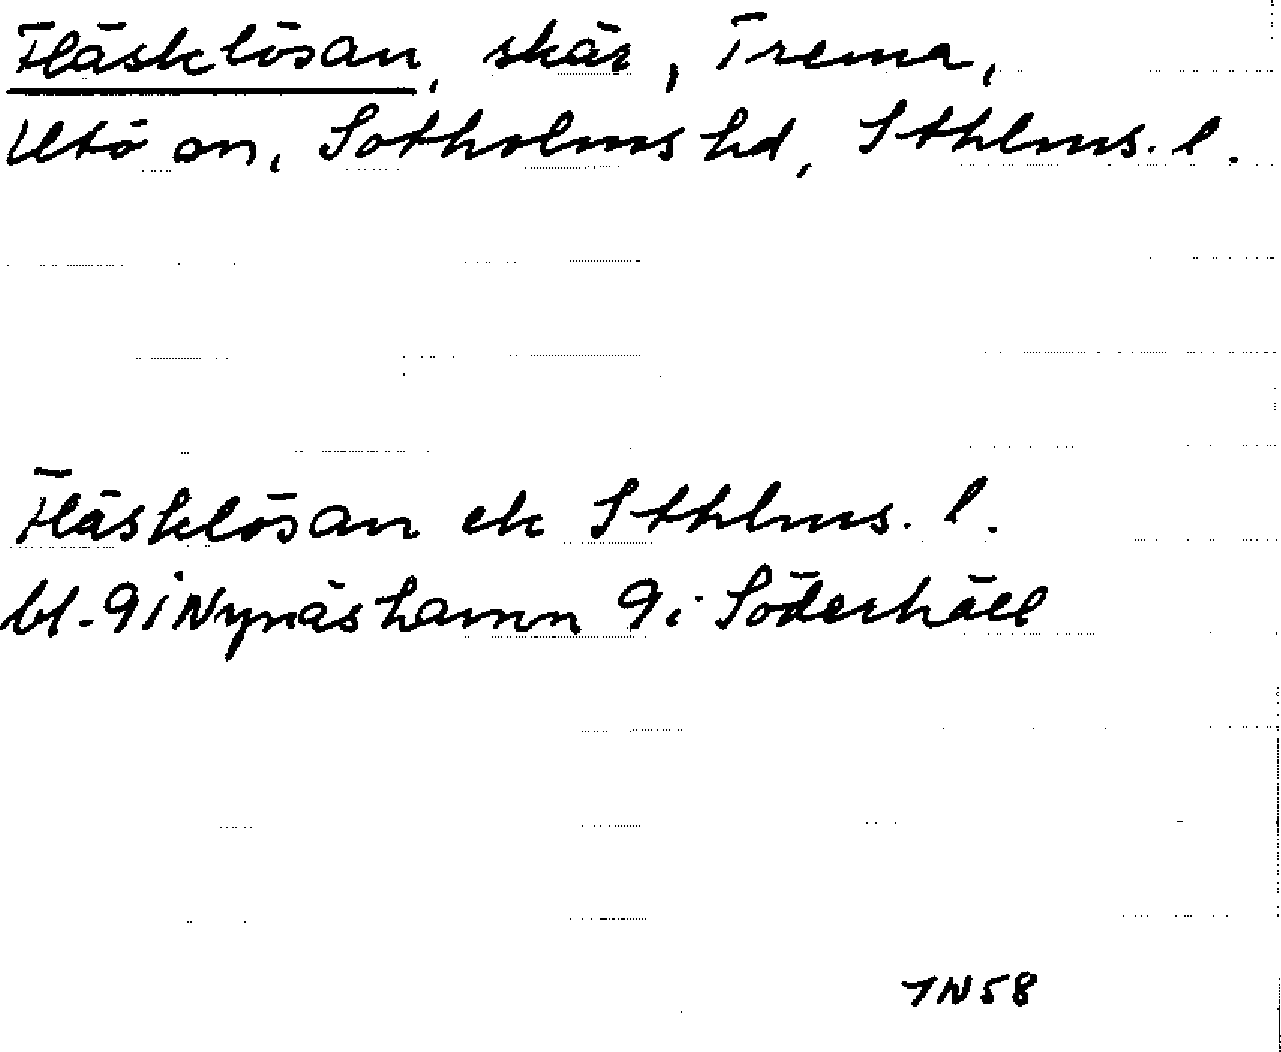 Fläsklösan, skär, Trema,
Utö an, Sotholms hd, Sthlms. l.
Fläsklösan ek Sthlms. l.
bl. 9i Nynäshamn 9i Söderhäll
TN58